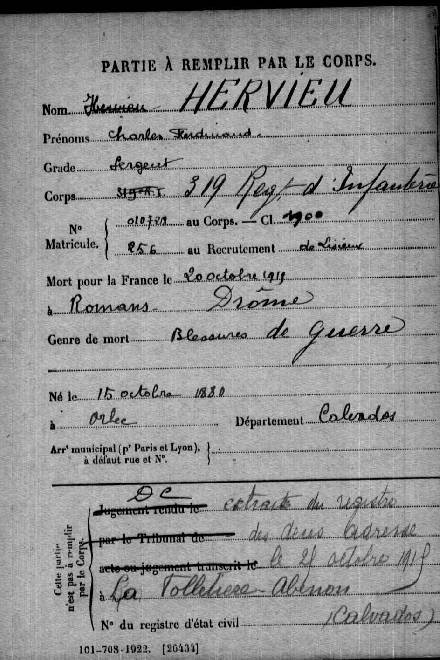 PARTIE À REMPLIR PAR LE CORPS.
Nom Hervieu HERVIEU
Prénoms Charles Ferdinand
Grade Sergent
Corps 319 Regt d'Infanterie
N° Matricule. { au Corps. — Cl. 1900
856 au Recrutement de Lisieux
Mort pour la France le 20 octobre 1915
à Romans Drôme
Genre de mort Blessures de guerre
Né le 15 octobre 1880
à Orbec Département Calvados
Arrt municipal (pr Paris et Lyon), à défaut rue et N°. }
Cette partie n'est pas à remplir par le Corps. {
DC
Jugement rendu le extraits du registre
par le Tribunal de des décès Adresse
acte ou jugement transcrit le le 21 octobre 1915
à La Abenon
N° du registre d'état civil (Calvados)
101-708-1922. [26434]